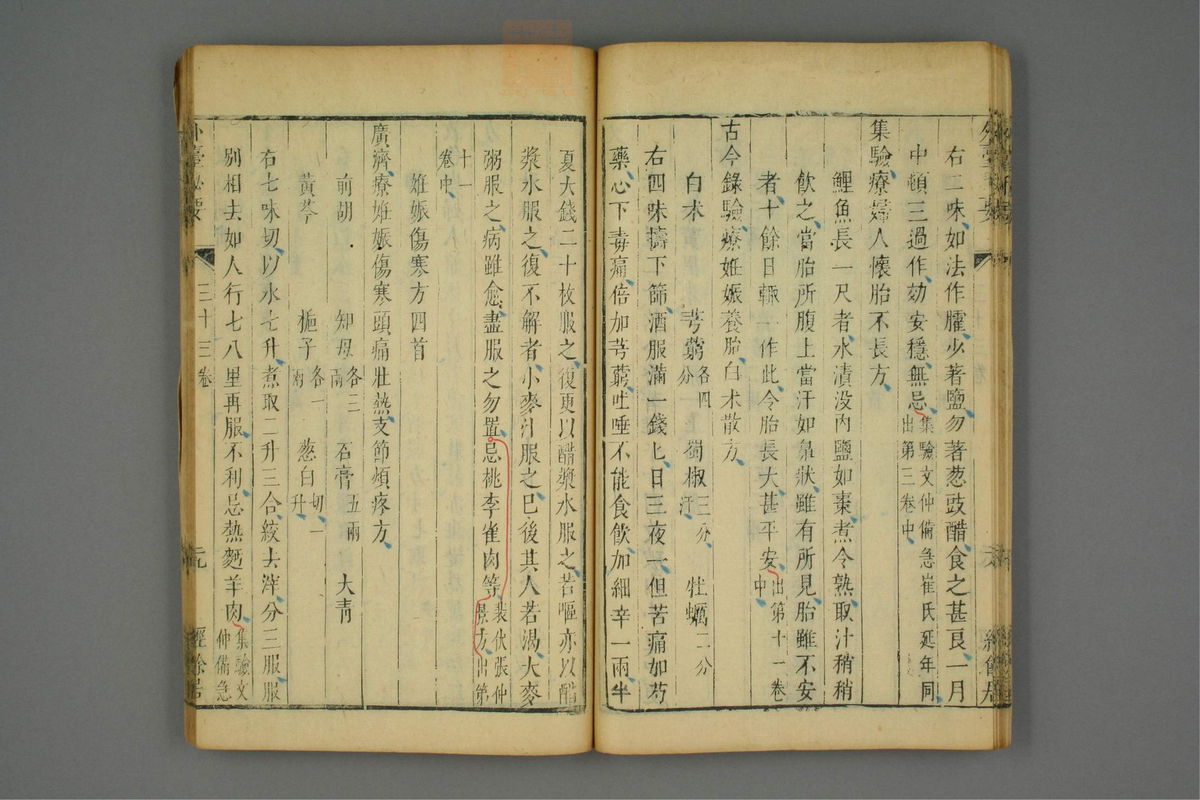 右二味如法作臛少著鹽勿著葱豉醋食之甚良一月
中頓三過作効安穩無忌集驗文仲備急崔氏延年同出第三卷中
集驗療婦人懷胎不長方
鯉魚長一尺者水漬沒內鹽如棗煮令熟取汁稍稍
飲之當胎所腹上當汗如鼻狀雖有所見胎雖不安
者十餘日輒一作此令胎長大甚平安出第十一卷中
古今錄驗療妊娠養胎白朮散方
白朮 芎藭各四分 蜀椒三分汗 牡蠣二分
右四味擣下篩酒服滿一錢匕日三夜一但苦痛加芍
藥心下毒痛倍加芎藭吐唾不能食飲加細辛一兩半
夏大錢二十枚服之復更以醋漿水服之若嘔亦以醋
漿水服之復不解者小麥汁服之已後其人若渴大麥
粥服之病雖愈盡服之勿置忌桃李雀肉等裴伏張仲景方出第
十一卷中
妊娠傷寒方四首
廣濟療妊娠傷寒頭痛壯熱支節煩疼方
前胡 知母各三兩 石膏五兩 大青
黃芩 梔子各一兩 葱白切一升
右七味切以水七升煮取二升三合絞去滓分三服服
別相去如人行七八里再服不利忌熱麪羊肉集驗文仲備急
外臺秘要 三十三卷 經餘居